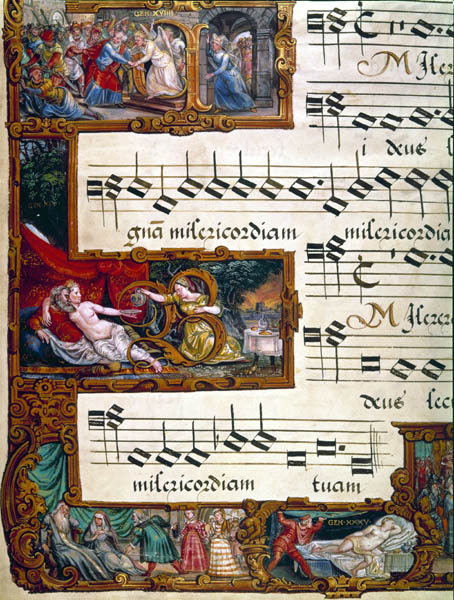 GEN·XVIIII
Miſere
i deus ſ
gnā miſericordiam miſericordia
Miſerer
deus ſec
miſericordiam tuam
GEN·XXXV